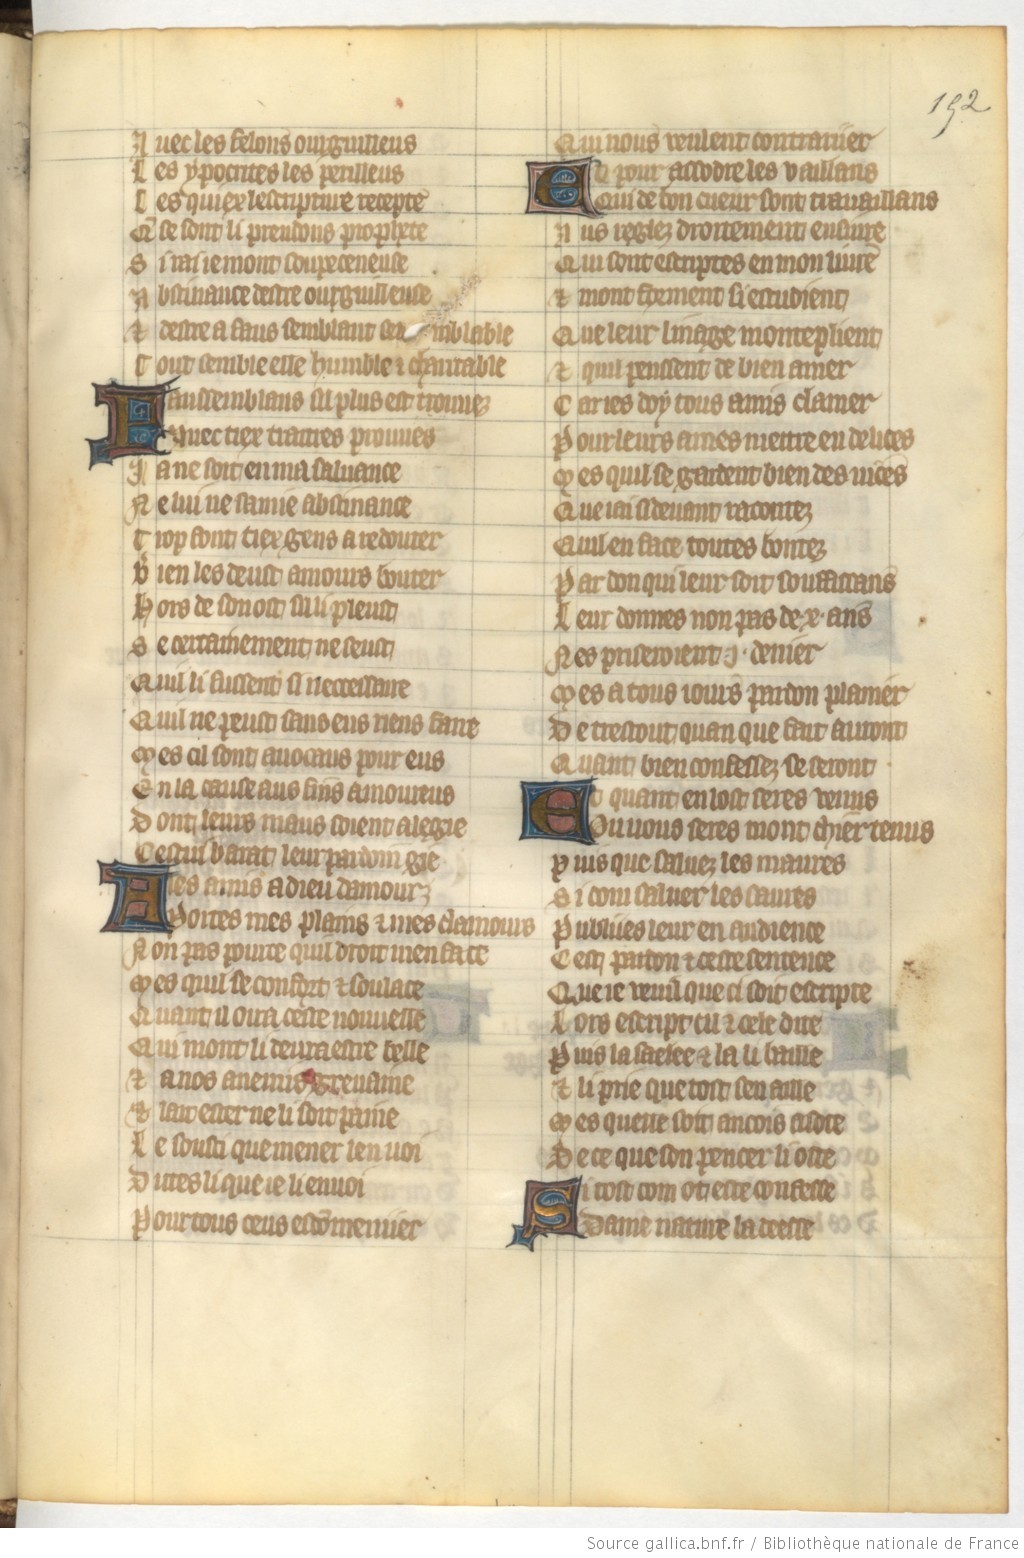 192
Auec les felons ourguilleus
Les ypocrites les perilleus
Les quiex lescripture recepte
Que se sont li preudons prophete
Si rai ie mont soupeceneuse
Abstinance destre ourguilleuse
Et destre a faus semblant semblable
Tout semble elle humble et charitable
Faussemblans sil plus est trouuez
Auec tiex traitres prouues
Ja ne soit en ma saluance
Ne lui ne samie abstinance
Trop font tiex gens a redouter
Bien les deust amours bouter
Hors de son ost sil li pleust
Se certainement ne seust
Quil li fussent si neccessaire
Quil ne peust sans eus riens faire
Mes cil sont auocaus pour eus
En la cause aus fins amoureus
Dont leurs maus soient alegie
Cestui barat leur pardoin gie
Ales amis a dieu damourz
Portes mes plains et mes clamours
Non pas pource quil droit men face
Mes quil se confort et soulace
Quant il orra ceste nouuelle
Qui mont li deura estre belle
Et a nos anemis greuaine
Et lait ester ne li soit paine
Le souci que mener len uoi
Dites li que ie li enuoi
Pour tous ceus escommenier
Qui nous veulent contrarier
Et pour assodre les vaillans
Qui de bon cueur sont trauaillans
Aus regles droitement ensuire
Qui sont escriptes en mon liure
Et mont forment si estudient
Que leur linage monteplient
Et qui penssent de bien amer
Car ies doy tous amis clamer
Pour leurs ames mettre en delices
Mes quil se gardent bien des vices
Que iai ci deuant racontez
Quil en face toutes bontez
Pardon qui leur soit souffisans
Leur donnes non pas de .x. ans
Nes priseroient .j. denier
Mes a tous iours pardon planier
De trestout quan que fait auront
Quant bien confessez se seront
Et quant en lost seres venus
Ou vous seres mont chier tenus
Puis que saluez les maures
Si com saluer les saures
Publiies leur en audience
Cest pardon et ceste sentence
Que ie vueil que ci soit escripte
Lors escript cil et cele dite
Puis la saelee et la li baille
Et li prie que tost sen aille
Mes quelle soit ancois asote
De ce que son pencer li oste
Si tost com ot este confesse
Dame nature la deesse
Source gallica.bnf.fr / Bibliothèque nationale de France